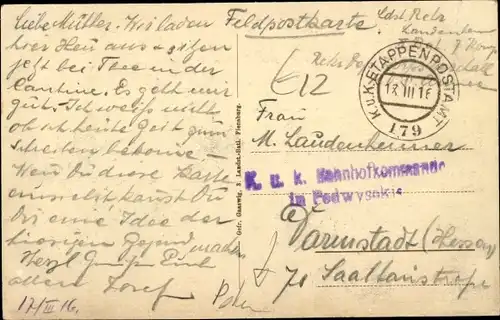 Liebe Mutter. Wir laden
hier Heu aus u. sitzen
jetzt bei Thee in der
Cantine. Es geht mir
gut. Ich weiß nicht
ob ich heute Zeit zum
Schreiben bekomme.
Wenn Du diese Karte
kannst Du
Dir eine Idee der
hiesigen Gegend machen
Herzl. Gruß Euch
allen Josef
17/III 16.
Gebr. Gasswig, 3. Landst.-Batl. Flensburg.
Feldpostkarte.
Ldst. Rekr
Laudenheimer
K.u.K. ETAPPENPOSTAMT
18 III 16
179
Frau
M. Laudenheimer
K. u. k. Bahnhofkommando
in Podwysokie
Darmstadt (Hessen)
70 Saalbaustraße